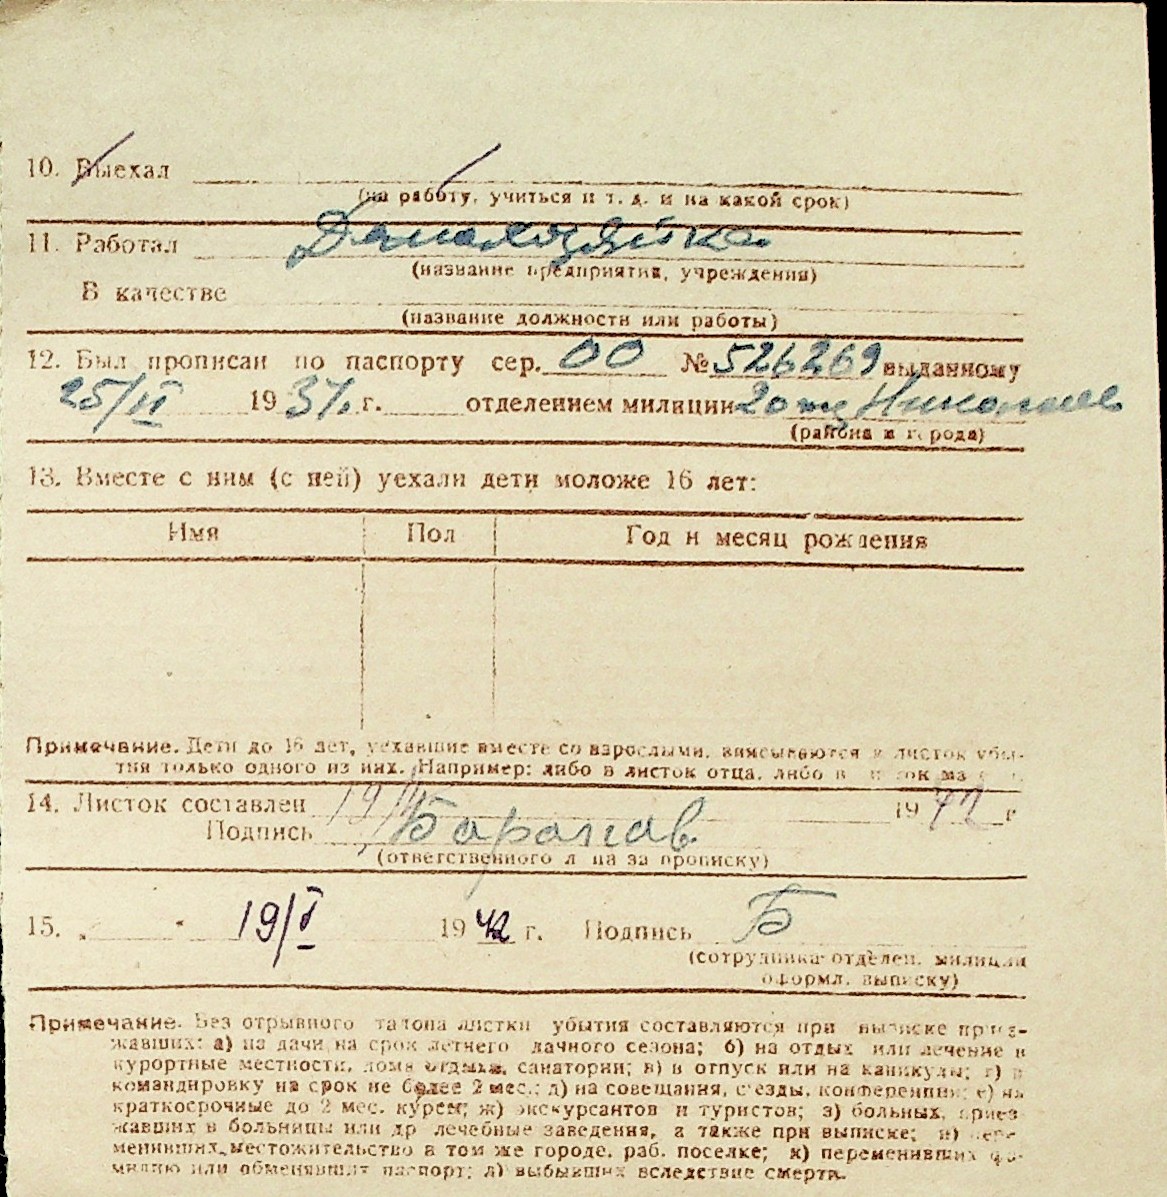 10. Выехал
(на работу, учиться и т. д. и на какой срок)
11. Работал Домохозяйка
(название предприятия, учреждения)
В качестве
(название должности или работы)
12. Был прописан по паспорту сер. 00 № 526269 выданному
25/II 1937. г. отделением милиции 2ой
(района и города)
13. Вместе с ним (с ней) уехали дети моложе 16 лет:
Имя Пол Год и месяц рождения
Примечание. Дети до 16 лет, уехавшие вместе со взрослыми, вписываются в листок убы-
тия только одного из них. Например: либо в листок отца, либо в листок ма
14. Листок составлен 19/I 1942 г
Подпись Баранов
(ответственного лица за прописку)
15. 19/I 1942 г. Подпись Б
(сотрудника отделен. милиции
оформл. выписку)
Примечание. Без отрывного талона листки убытия составляются при выписке приез-
жавших: а) на дачи на срок летнего дачного сезона; б) на отдых или лечение в
курортные местности, дома отдыха, санатории; в) в отпуск или на каникулы; г) в
командировку на срок не более 2 мес.; д) на совещания, съезды, конференции; е) на
краткосрочные до 2 мес. курсы; ж) экскурсантов и туристов; з) больных, приез-
жавших в больницы или др лечебные заведения, а также при выписке; и) пере-
менивших местожительство в том же городе, раб. поселке; к) переменивших фа-
милию или обменявших паспорт; л) выбывших вследствие смерти.